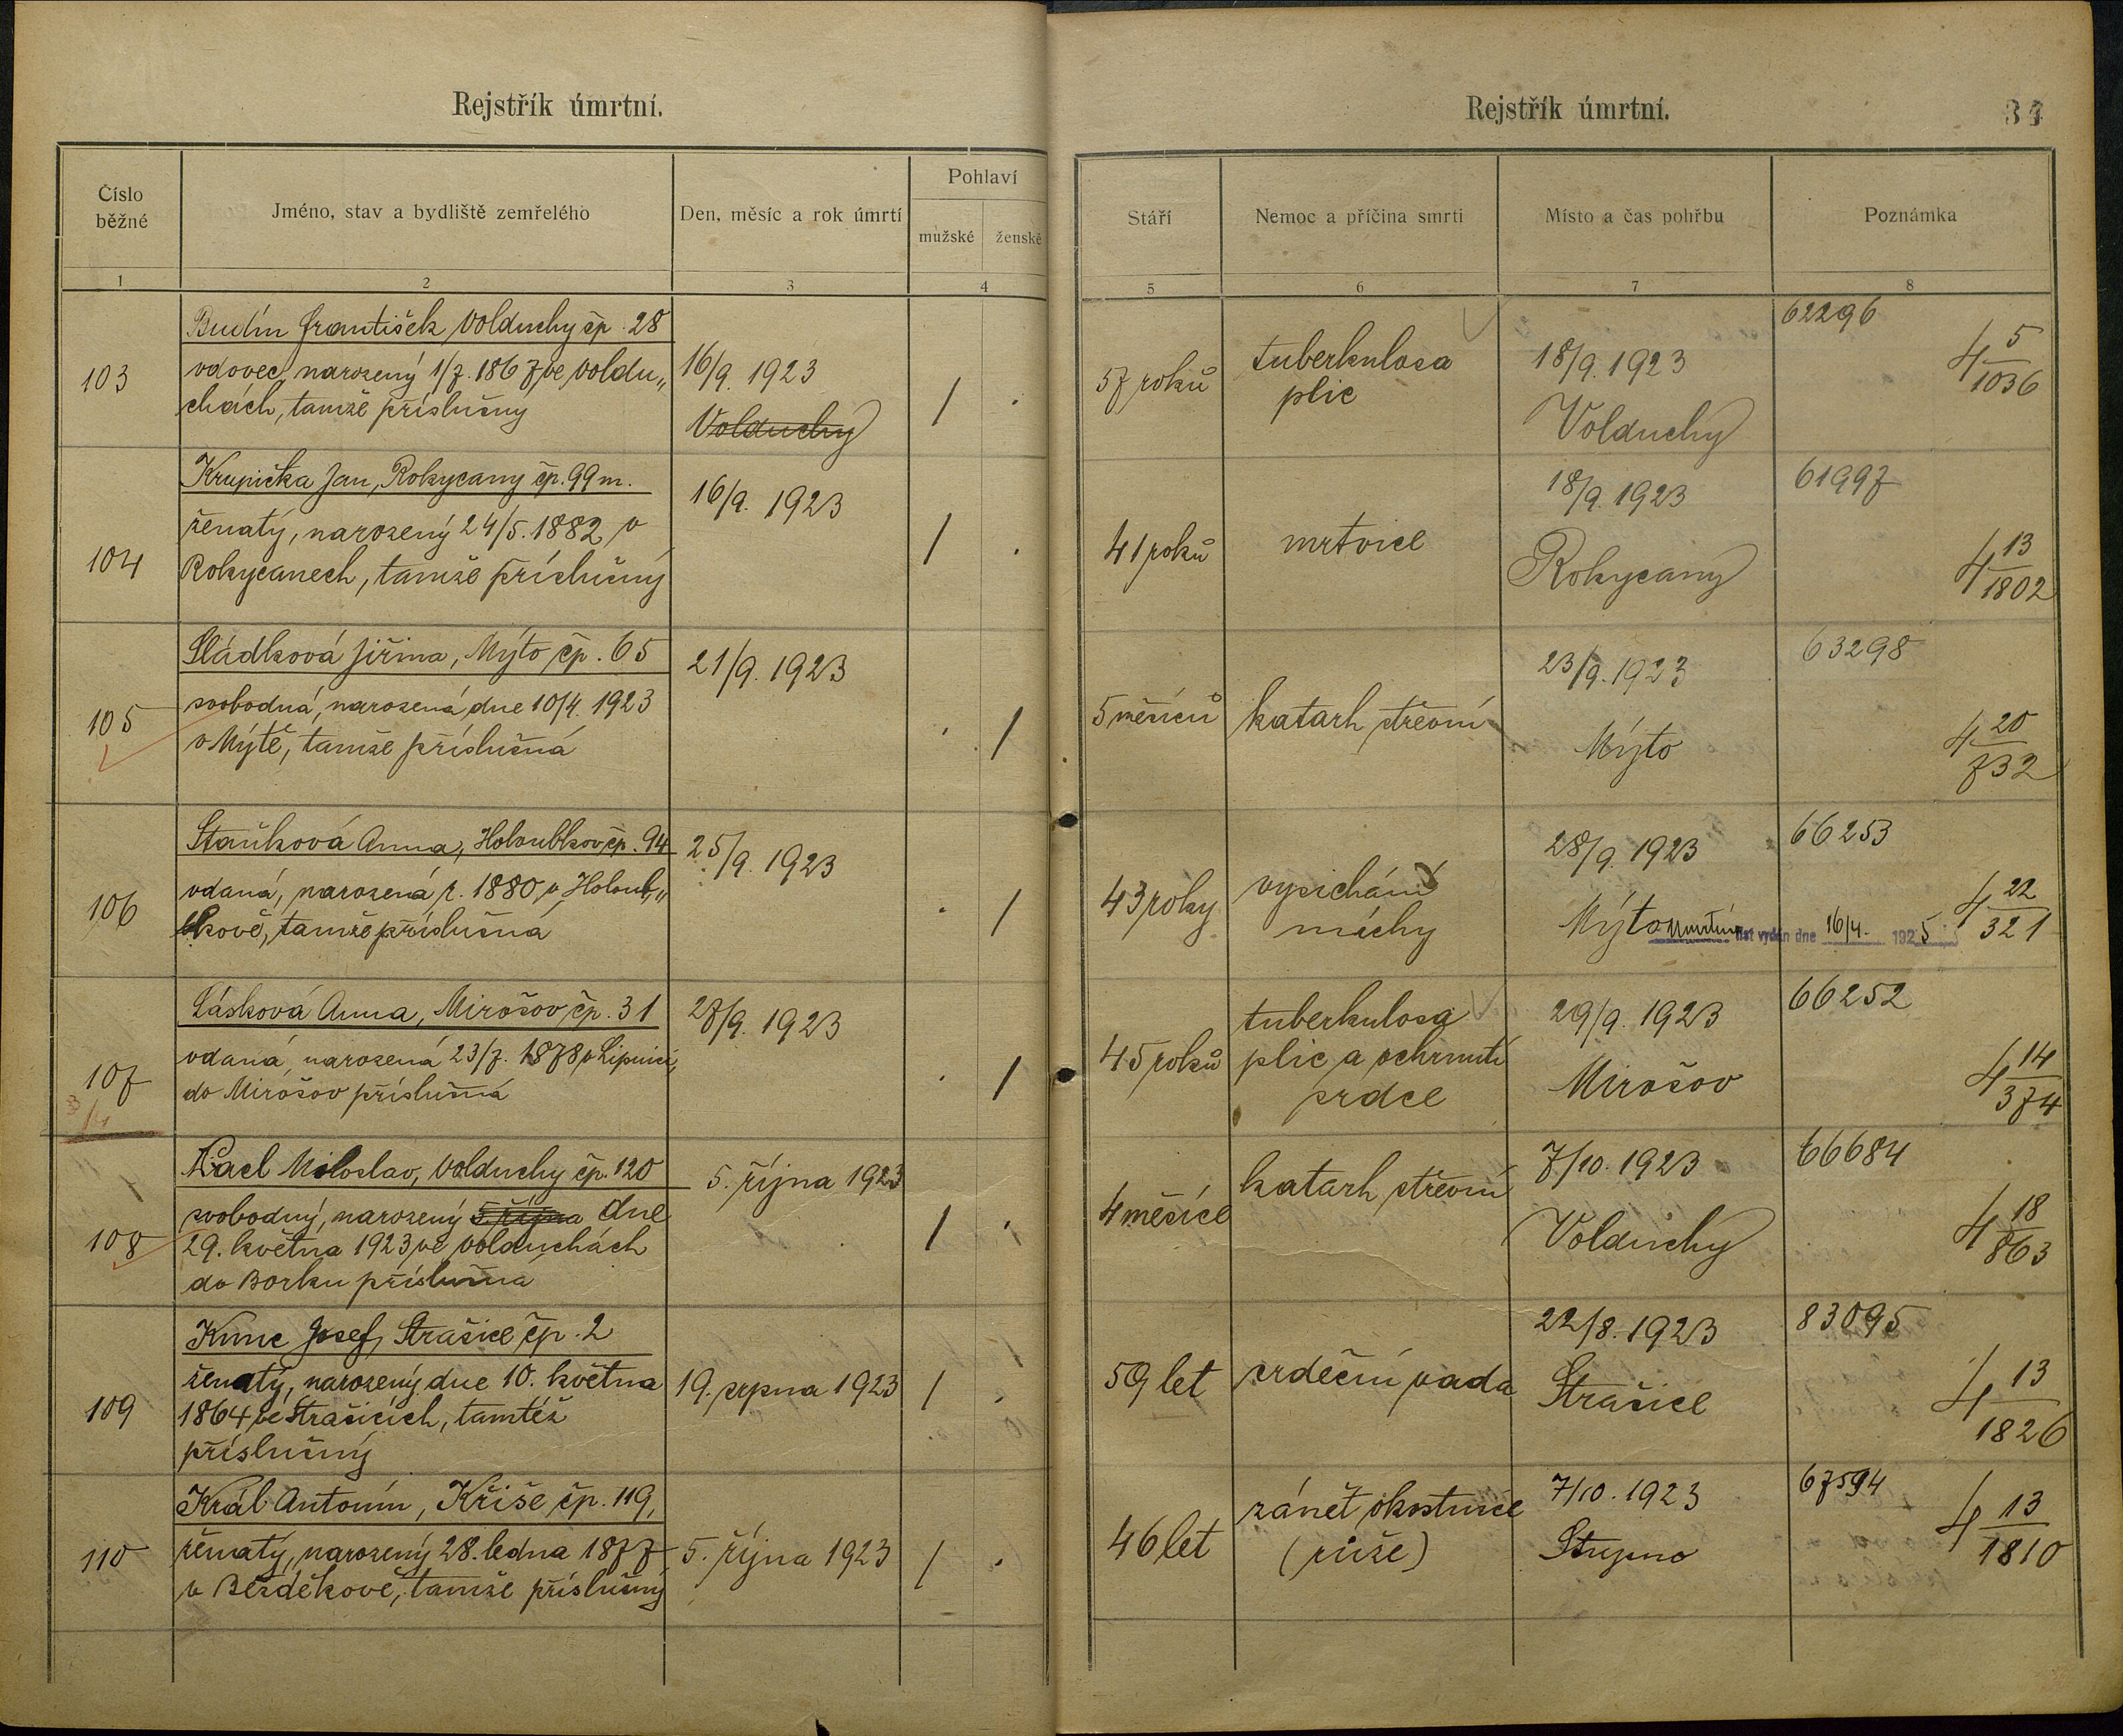 Rejstřík úmrtní.
Číslo běžné
Jméno, stav a bydliště zemřelého
Den, měsíc a rok úmrtí
Pohlaví
mužské
ženské
1
2
3
4
103
Budín František Volduchy čp. 28
vdovec, narozený 1/7. 1867 ve Voldu„
chách, tamže příslušný
16/9. 1923
Volduchy
/
.
104
Krupička Jan, Rokycany čp. 99 m.
ženatý, narozený 24/5. 1882 v
Rokycanech, tamže příslušný
16/9. 1923
/
.
105
Sládková Jiřina, Mýto čp. 65
svobodná, narozená dne 10/4. 1923
v Mýtě, tamže příslušná
21/9. 1923
.
/
106
Staňková Anna, Holoubkov čp. 94
vdaná, narozená r. 1880 v Holoub„
kově, tamže příslušná
25/9. 1923
.
/
107
Lásková Anna, Mirošov čp. 31
vdaná, narozená 23/7. 1878 v Lipnici,
do Mirošov příslušná
27/9. 1923
.
/
108
Lacl Miloslav, Volduchy čp. 120
svobodný, narozený 5. října dne
29. května 1923 ve Volduchách
do Borku příslušna
5. října 1923
/
.
109
Kunc Josef, Strašice čp. 2
ženatý, narozený dne 10. května
1864 ve Strašicích, tamtéž
příslušný
19. srpna 1923
/
.
110
Král Antonín, Kříše čp. 119,
ženatý, narozený 28. ledna 1877
v Bezděkově, tamže příslušný
5. října 1923
/
.
Rejstřík úmrtní.
34
Stáří
Nemoc a příčina smrti
Místo a čas pohřbu
Poznámka
5
6
7
8
57 roků
tuberkulosa
plic
18/9. 1923
Volduchy
62296
4 5/1036
41 roků
mrtvice
18/9. 1923
Rokycany
61997
4 13/1802
5 měsíců
katarh střevní
23/9. 1923
Mýto
63298
4 20/732
43 roky
vysichání
míchy
28/9. 1923
Mýto
66253
úmrtní list vydán dne 16/4. 1925
4 22/321
45 roků
tuberkulosa
plic a ochrnutí
srdce
29/9. 1923
Mirošov
66252
4 14/374
4 měsíce
katarh střevní
7/10. 1923
Volduchy
66684
4 18/863
59 let
srdeční vada
22/8. 1923
Strašice
83095
4 13/1826
46 let
zánět okostnice
(růže)
7/10. 1923
Stupno
67594
4 13/1810